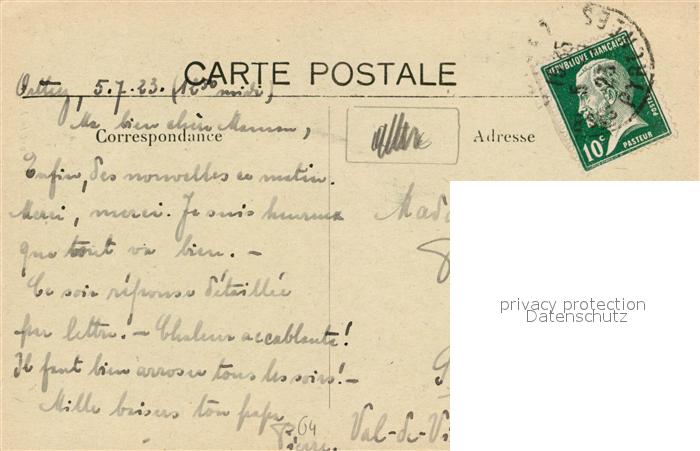 CARTE POSTALE
Orthez, 5.7.23. (12h30 midi)
Ma bien chère Maman,
Correspondance
Adresse
Enfin, des nouvelles ce matin.
Merci, merci. Je suis heureux
que tout va bien. -
Ce soir réponse détaillée
par lettre. - Chaleur accablante!
Il faut bien arroser tous les soirs! -
Mille baisers ton papa
Pierre.
64
Mada
Val-de-Vi
RÉPUBLIQUE FRANÇAISE
POSTES
10c
PASTEUR
privacy protection
Datenschutz